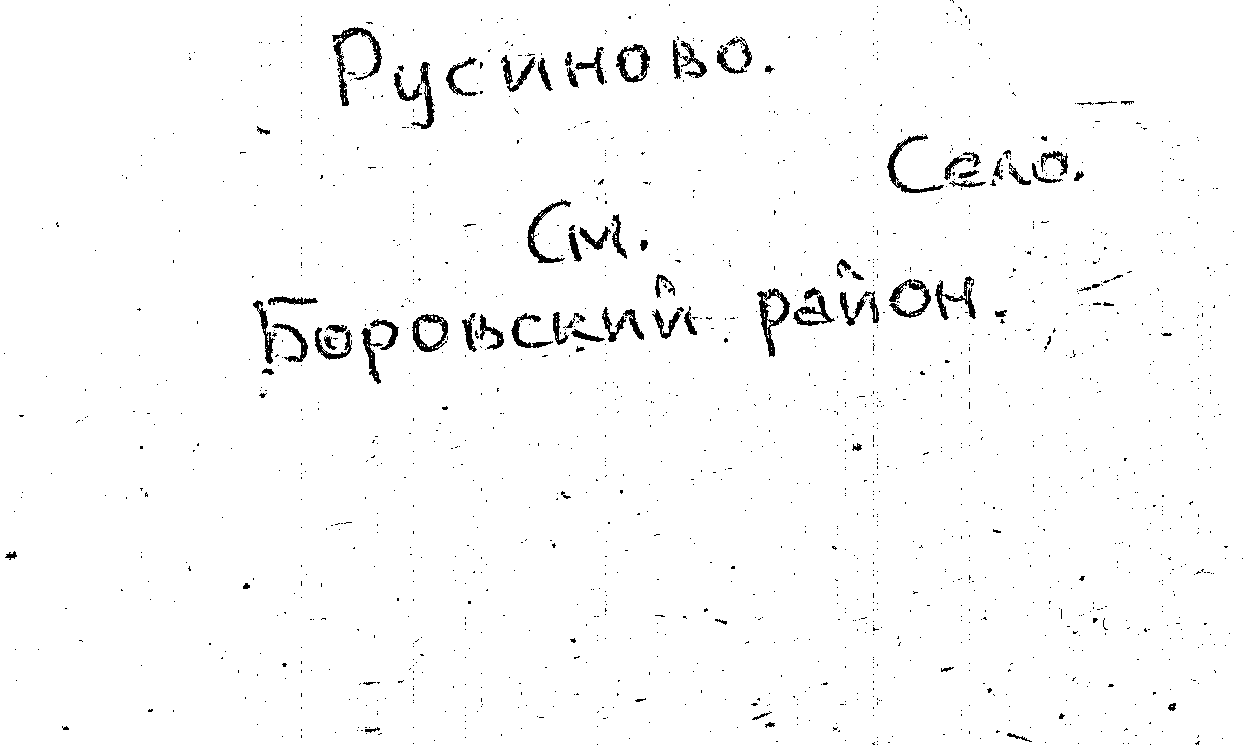 Русиново.
Село.
См.
Боровский район.